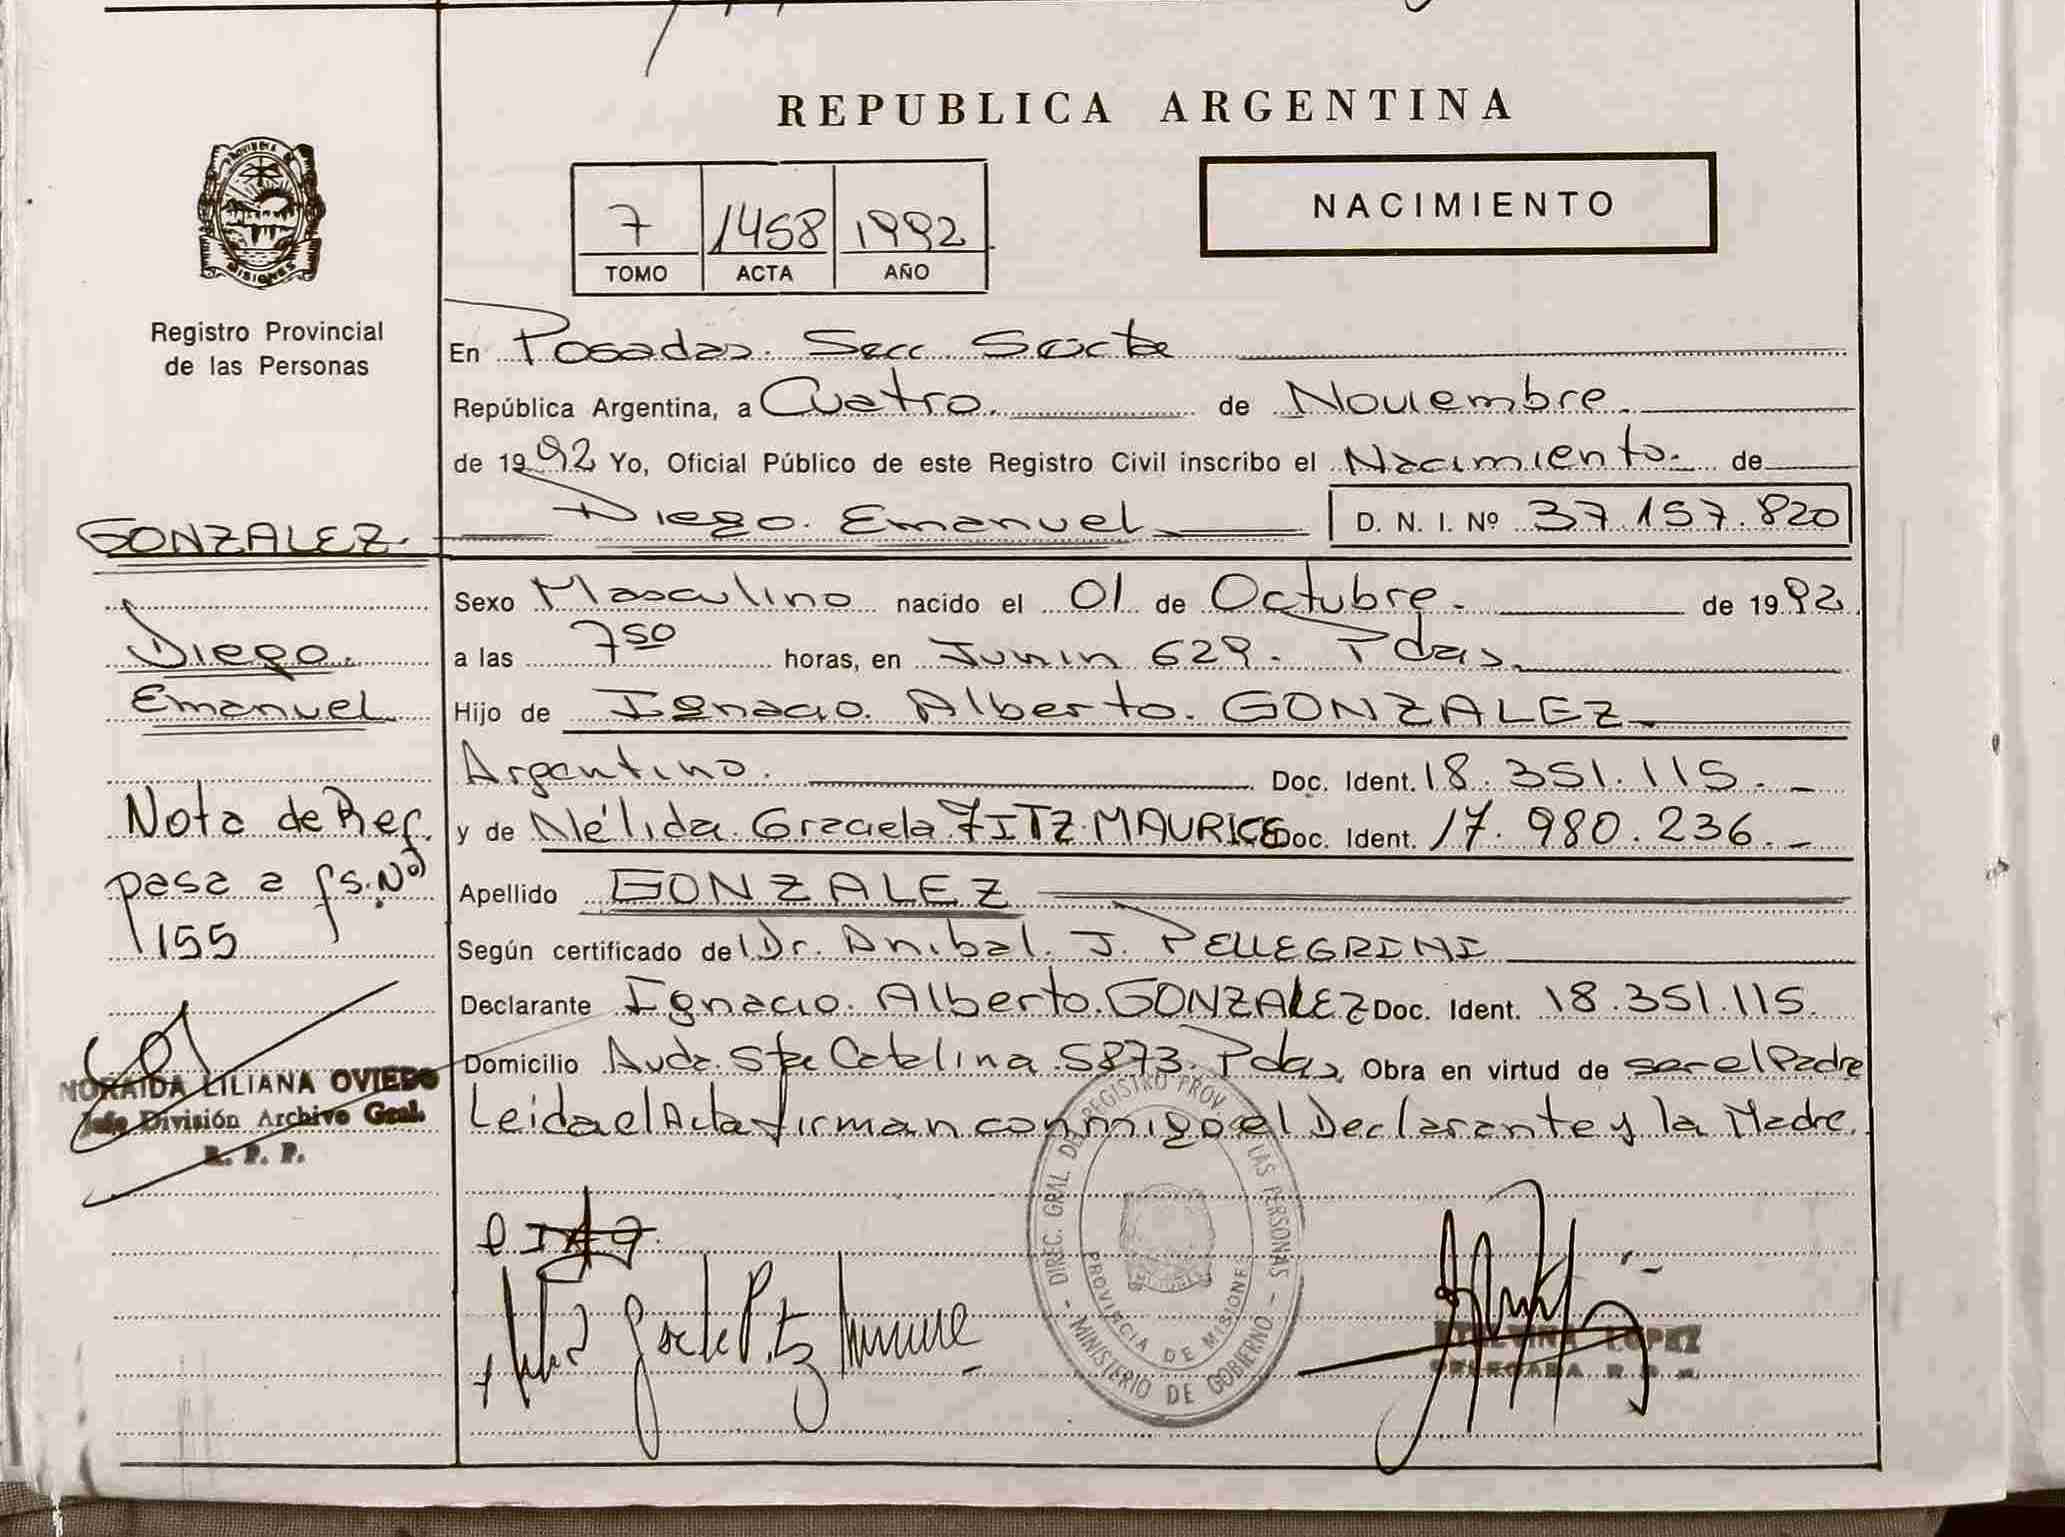 REPUBLICA ARGENTINA
NACIMIENTO
7 1458 1992
TOMO ACTA AÑO
PROVINCIA DE
MISIONES
Registro Provincial
de las Personas
En Posadas. Secc. Sexta
República Argentina, a Cuatro. de Noviembre.
de 1992 Yo, Oficial Público de este Registro Civil inscribo el Nacimiento. de
Diego. Emanuel D. N. I. Nº 37.157.820
Sexo Masculino nacido el 01 de Octubre. de 1992
a las 7 50 horas, en Junin 629. Pdas.
Hijo de Ignacio. Alberto. GONZALEZ
Argentino. Doc. Ident. 18.351.115.-
y de Nélida. Graciela FITZ MAURICE Doc. Ident. 17.980.236.-
Apellido GONZALEZ
Según certificado del Dr. Anibal. J. PELLEGRINI
Declarante Ignacio. Alberto. GONZALEZ Doc. Ident. 18.351.115.
Domicilio Avda. Sta Catalina. 5873. Pdas. Obra en virtud de ser el Padre
Leida el Acta firman conmigo el Declarante y la Madre.
GONZALEZ.
Diego.
Emanuel
Nota de Ref.
pasa a fs. Nº
155
NORAIDA LILIANA OVIEDO
Jefe División Archivo Gral.
R. P. P.
DIREC. GRAL. DE REGISTRO PROV. DE LAS PERSONAS
PROVINCIA DE MISIONES
- MINISTERIO DE GOBIERNO -
LOPEZ
DELEGADA R. P. P.